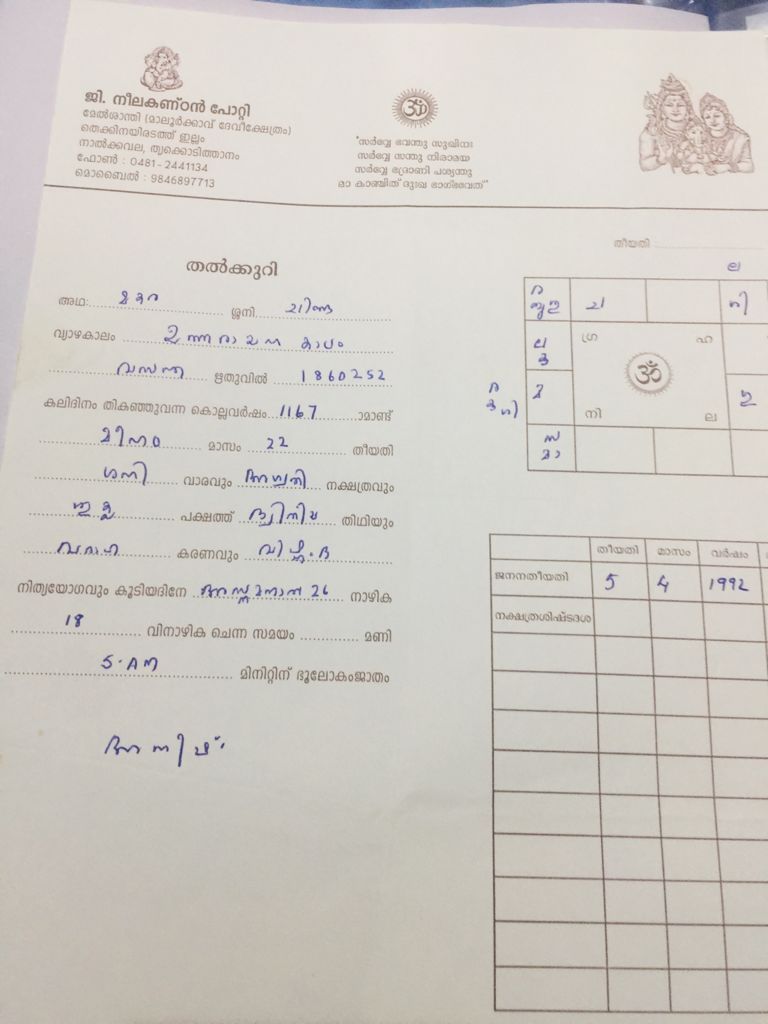 ജി. നീലകണ്ഠൻ പോറ്റി
മേൽശാന്തി (മാലൂർക്കാവ് ദേവീക്ഷേത്രം)
തെക്കിനയിരടത്ത് ഇല്ലം
നാൽക്കവല, തൃക്കൊടിത്താനം
ഫോൺ : 0481-2441134
മൊബൈൽ : 9846897713
ॐ
"സർവ്വേ ഭവന്തു സുഖിനഃ
സർവ്വേ സന്തു നിരാമയ
സർവ്വേ ഭദ്രാണി പശ്യന്തു
മാ കാഞ്ചിത് ദുഃഖ ഭാഗ്ഭവേത്"
തീയതി
തൽക്കുറി
അഥഃ മകര ശ്രുനി
വ്യാഴകാലം ഉത്തരായന കാലം
വസന്ത ഋതുവിൽ 1860252
കലിദിനം തികഞ്ഞുവന്ന കൊല്ലവർഷം 1167 ാമാണ്ട്
മീനം മാസം 22 തീയതി
ശനി വാരവും അശ്വതി നക്ഷത്രവും
ശുക്ല പക്ഷത്ത് ദ്വിതീയ തിഥിയും
വരാഹ കരണവും
നിത്യയോഗവും കൂടിയദിനേ അസ്തമനാൽ 26 നാഴിക
18 വിനാഴിക ചെന്ന സമയം മണി
5.AM മിനിറ്റിന് ഭൂലോകംജാതം
അനീഷ്.
ല
ച
ഗ്ര ഹ
ॐ
നി ല
തീയതി മാസം വർഷം
ജനനതീയതി 5 4 1992
നക്ഷത്രശിഷ്ടദശ